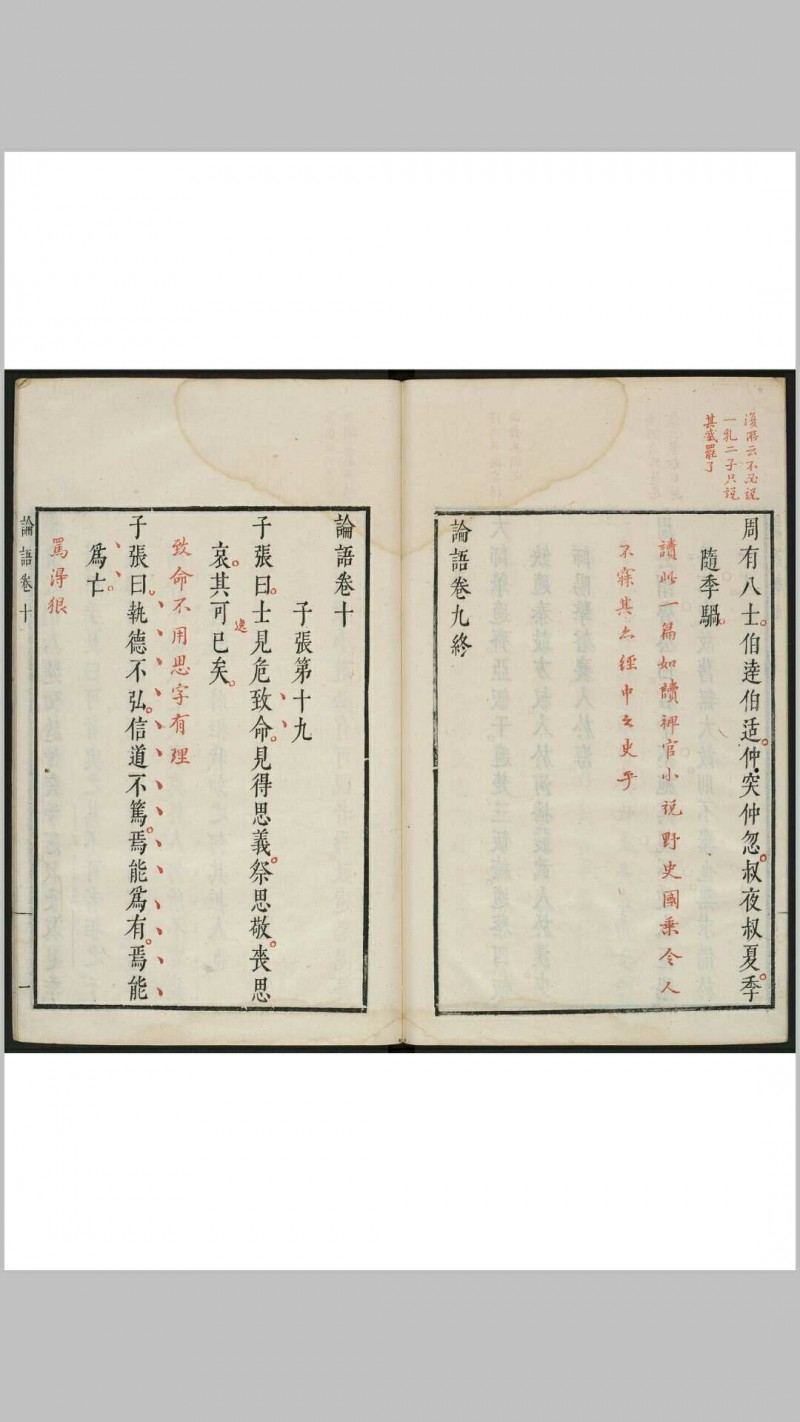 復所云不必說
一乳二子只說
其盛罷了
周有八士伯達伯适仲突仲忽叔夜叔夏季
隨季騧
讀此一篇如讀稗官小說野史國乘令人
不寐其亦經中之史乎
論語卷九終
論語卷十
子張第十九
子張曰士見危致命見得思義祭思敬喪思
哀其可已矣
致命不用思字有理
子張曰執德不弘信道不篤焉能爲有焉能
爲亡
罵得狠
論語卷十
一